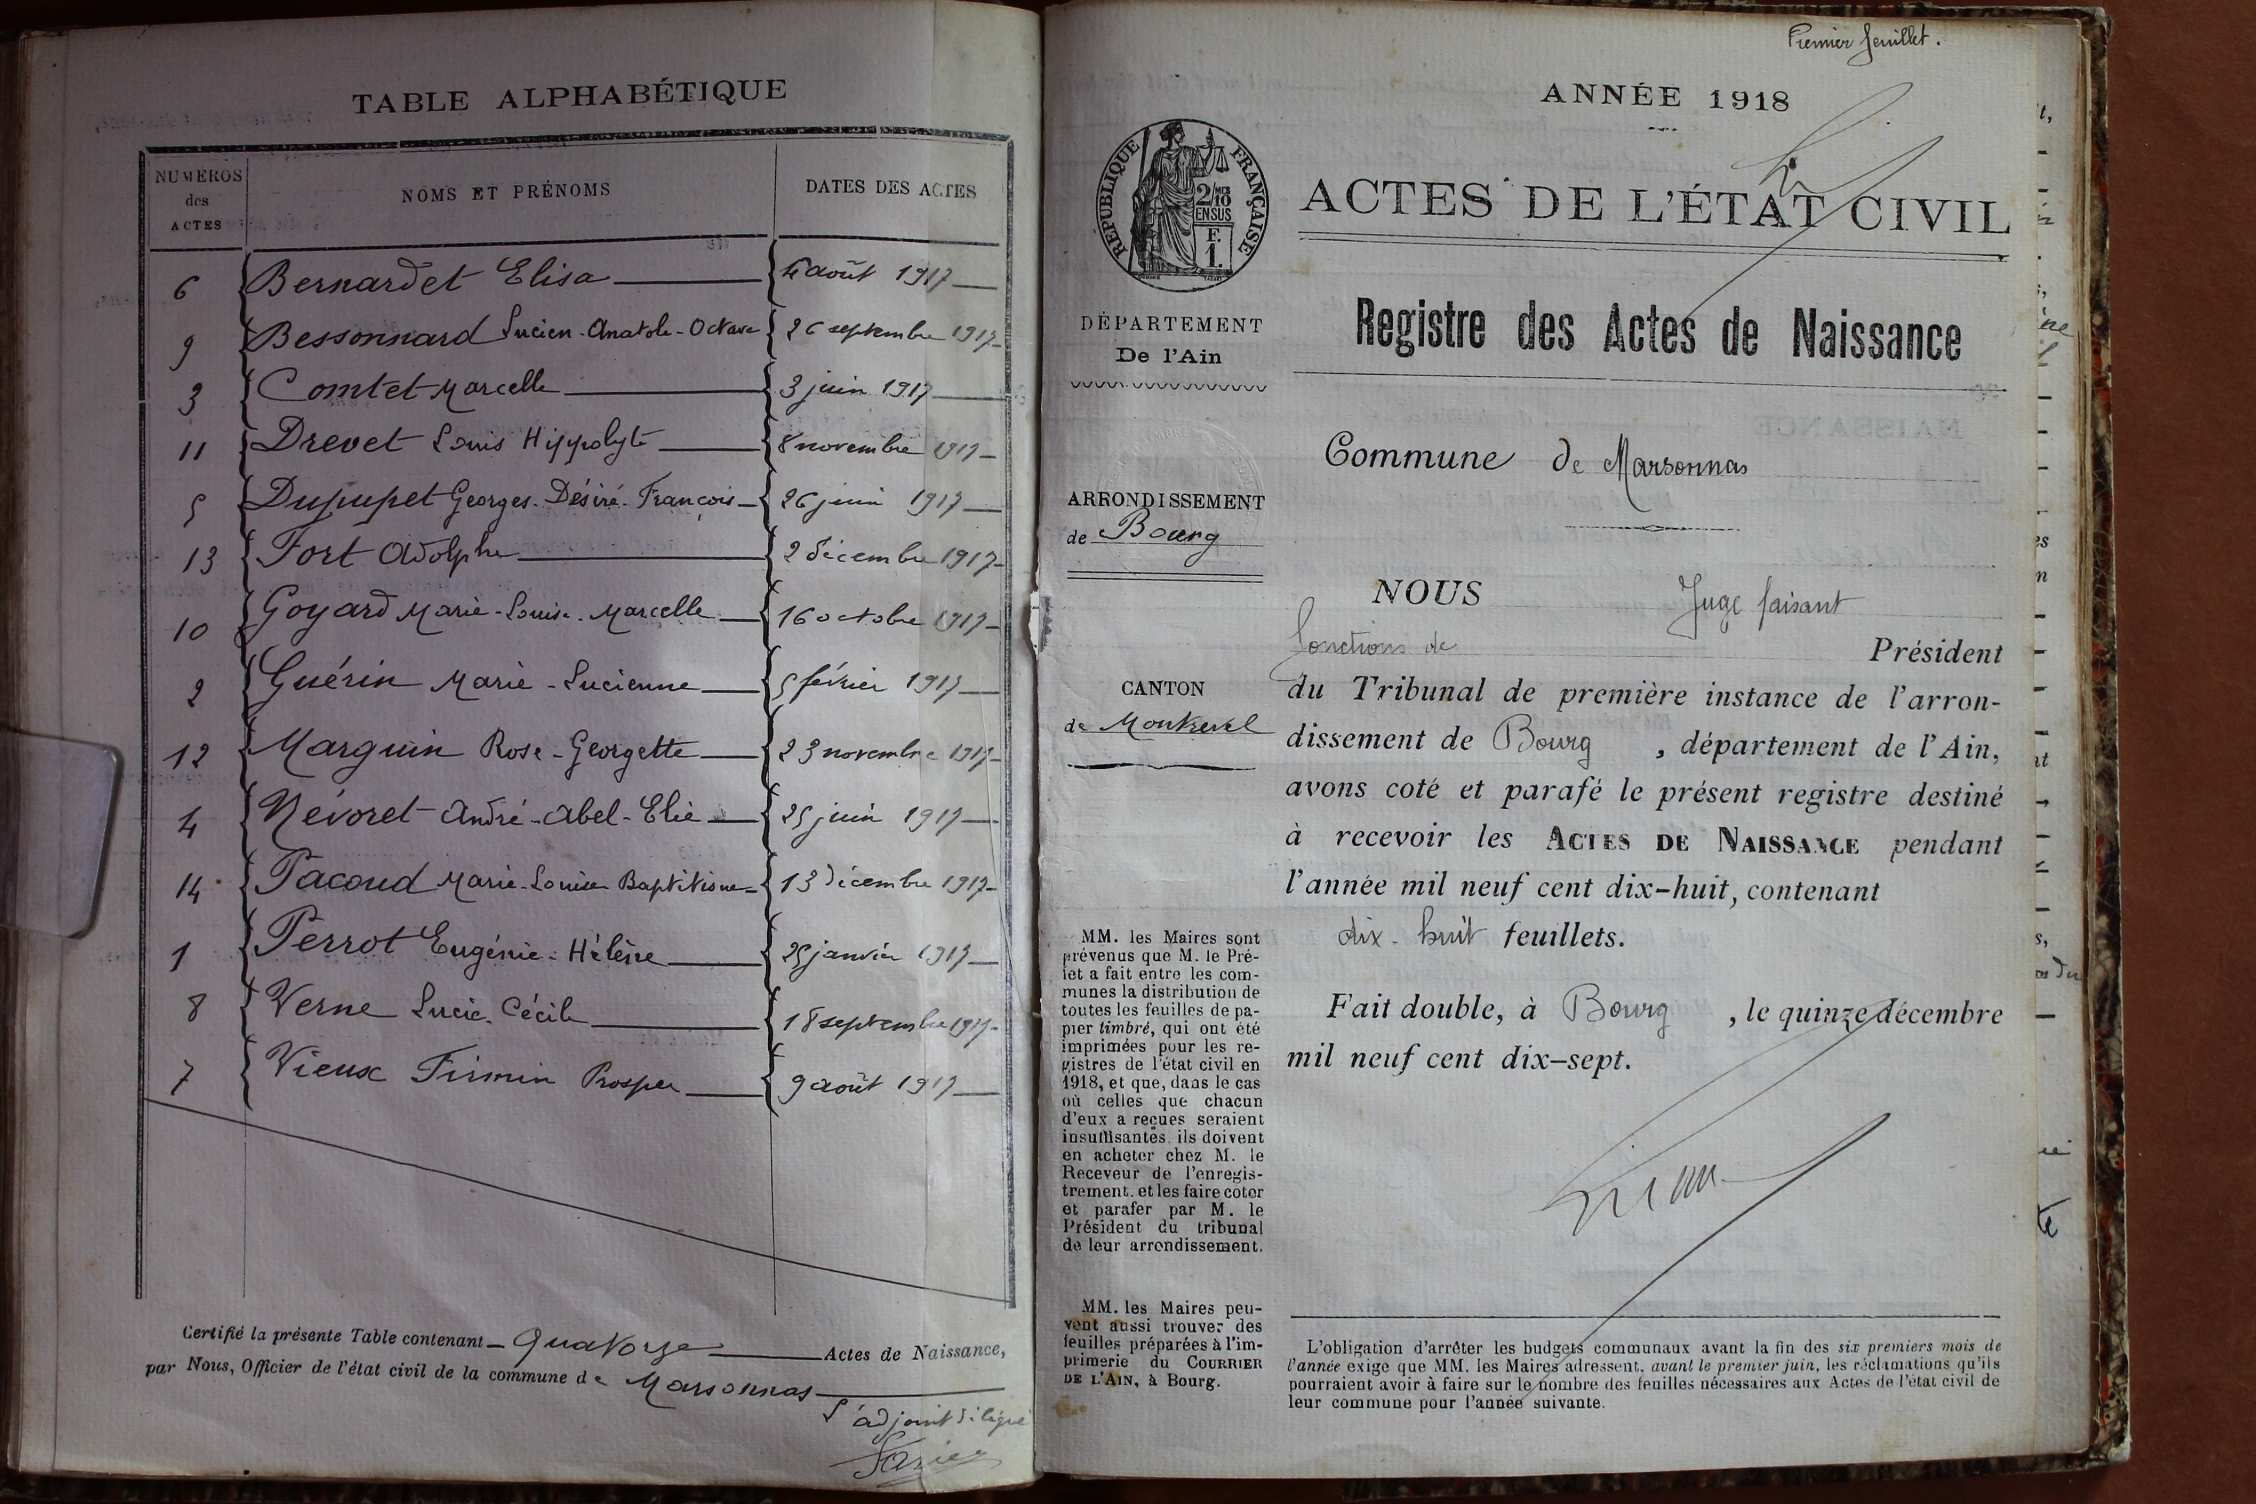 TABLE ALPHABÉTIQUE
NUMÉROS des ACTES NOMS ET PRÉNOMS DATES DES ACTES
6 Bernardet Elisa 4 août 1917
9 Bessonnard Lucien-Anatole-Octave 26 septembre 1917
3 Comtet Marcelle 3 juin 1917
11 Drevet Louis Hippolyte 8 novembre 1917
5 Dupupet Georges-Désiré-François 26 juin 1917
13 Fort Adolphe 2 décembre 1917
10 Goyard Marie-Louise-Marcelle 16 octobre 1917
2 Guérin Marie-Lucienne 5 février 1917
12 Marguin Rose-Georgette 23 novembre 1917
4 Névoret André-Abel-Elie 25 juin 1917
14 Pacoud Marie-Louise Baptistine 13 décembre 1917
1 Perrot Eugénie-Hélène 25 janvier 1917
8 Verne Lucie-Cécile 18 septembre 1917
7 Vieux Firmin Prosper 9 août 1917
Certifié la présente Table contenant Quatorze Actes de Naissance,
par Nous, Officier de l'état civil de la commune de Marsonnas
L'adjoint délégué
Premier feuillet.
ANNÉE 1918
RÉPUBLIQUE FRANÇAISE
2/10 MES
EN SUS
F.
1.
ACTES DE L'ÉTAT CIVIL
DÉPARTEMENT
De l'Ain
Registre des Actes de Naissance
Commune de Marsonnas
ARRONDISSEMENT
de Bourg
CANTON
de Montrevel
NOUS Juge faisant
fonctions de Président
du Tribunal de première instance de l'arron-
dissement de Bourg, département de l'Ain,
avons coté et parafé le présent registre destiné
à recevoir les ACTES DE NAISSANCE pendant
l'année mil neuf cent dix-huit, contenant
dix-huit feuillets.
Fait double, à Bourg, le quinze décembre
mil neuf cent dix-sept.
MM. les Maires sont
prévenus que M. le Pré-
fet a fait entre les com-
munes la distribution de
toutes les feuilles de pa-
pier timbré, qui ont été
imprimées pour les re-
gistres de l'état civil en
1918, et que, dans le cas
où celles que chacun
d'eux a reçues seraient
insuffisantes, ils doivent
en acheter chez M. le
Receveur de l'enregis-
trement, et les faire coter
et parafer par M. le
Président du tribunal
de leur arrondissement.
MM. les Maires peu-
vent aussi trouver des
feuilles préparées à l'im-
primerie du COURRIER
DE L'AIN, à Bourg.
L'obligation d'arrêter les budgets communaux avant la fin des six premiers mois de
l'année exige que MM. les Maires adressent, avant le premier juin, les réclamations qu'ils
pourraient avoir à faire sur le nombre des feuilles nécessaires aux Actes de l'état civil de
leur commune pour l'année suivante.